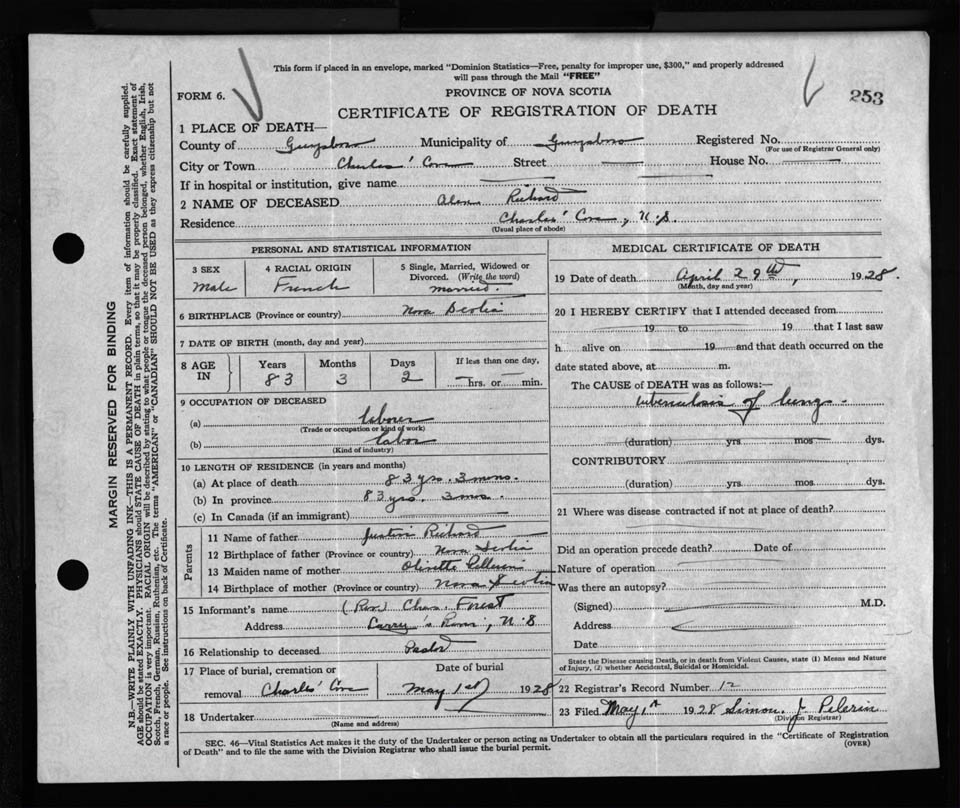 This form if placed in an envelope, marked "Dominion Statistics—Free, penalty for improper use, $300," and properly addressed
will pass through the Mail "FREE"
FORM 6.
PROVINCE OF NOVA SCOTIA
253
CERTIFICATE OF REGISTRATION OF DEATH
1 PLACE OF DEATH—
County of Guysboro Municipality of Guysboro Registered No.
(For use of Registrar General only)
City or Town Charles' Cove Street House No.
If in hospital or institution, give name
2 NAME OF DECEASED Richard
Residence Charles' Cove, N.S.
(Usual place of abode)
PERSONAL AND STATISTICAL INFORMATION
3 SEX
Male
4 RACIAL ORIGIN
French
5 Single, Married, Widowed or
Divorced. (Write the word)
married.
6 BIRTHPLACE (Province or country) Nova Scotia
7 DATE OF BIRTH (month, day and year)
8 AGE IN
Years Months Days If less than one day,
83 3 2 hrs. or min.
9 OCCUPATION OF DECEASED
(a) laborer
(Trade or occupation or kind of work)
(b) labor
(Kind of industry)
10 LENGTH OF RESIDENCE (in years and months)
(a) At place of death 83 yrs. 3 mons.
(b) In province 83 yrs. 3 mos.
(c) In Canada (if an immigrant)
Parents
11 Name of father Justin Richard
12 Birthplace of father (Province or country) Nova Scotia
13 Maiden name of mother
14 Birthplace of mother (Province or country) Nova Scotia
15 Informant's name (Rev) Chas. Forest
Address Larry's River, N.S
16 Relationship to deceased Pastor
17 Place of burial, cremation or Date of burial
removal Charles' Cove May 1st 1928
18 Undertaker
(Name and address)
MEDICAL CERTIFICATE OF DEATH
19 Date of death April 29th, 1928.
(Month, day and year)
20 I HEREBY CERTIFY that I attended deceased from
19 to 19 that I last saw
h alive on 19 and that death occurred on the
date stated above, at m.
The CAUSE of DEATH was as follows:—
tuberculosis of lungs.
(duration) yrs mos dys.
CONTRIBUTORY
(duration) yrs. mos dys.
21 Where was disease contracted if not at place of death?
Did an operation precede death? Date of
Nature of operation
Was there an autopsy?
(Signed) M.D.
Address
Date
State the Disease causing Death, or in death from Violent Causes, state (1) Means and Nature
of Injury, (2) whether Accidental, Suicidal or Homicidal.
22 Registrar's Record Number 12
23 Filed May 1st 1928 Simon J Pelerin
(Division Registrar)
SEC. 46—Vital Statistics Act makes it the duty of the Undertaker or person acting as Undertaker to obtain all the particulars required in the "Certificate of Registration
of Death" and to file the same with the Division Registrar who shall issue the burial permit.
(OVER)
MARGIN RESERVED FOR BINDING
N.B.—WRITE PLAINLY WITH UNFADING INK—THIS IS A PERMANENT RECORD. Every item of information should be carefully supplied.
AGE should be stated EXACTLY. PHYSICIANS should STATE CAUSE OF DEATH in plain terms, so that it may be properly classified. Exact statement of
OCCUPATION is very important. RACIAL ORIGIN will be described by stating to what people or tongue the deceased person belonged, whether English, Irish,
Scotch, French, German, Russian, Ruthenian, etc. The terms "AMERICAN" or "CANADIAN" SHOULD NOT BE USED as they express citizenship but not
a race or people. See instructions on back of Certificate.